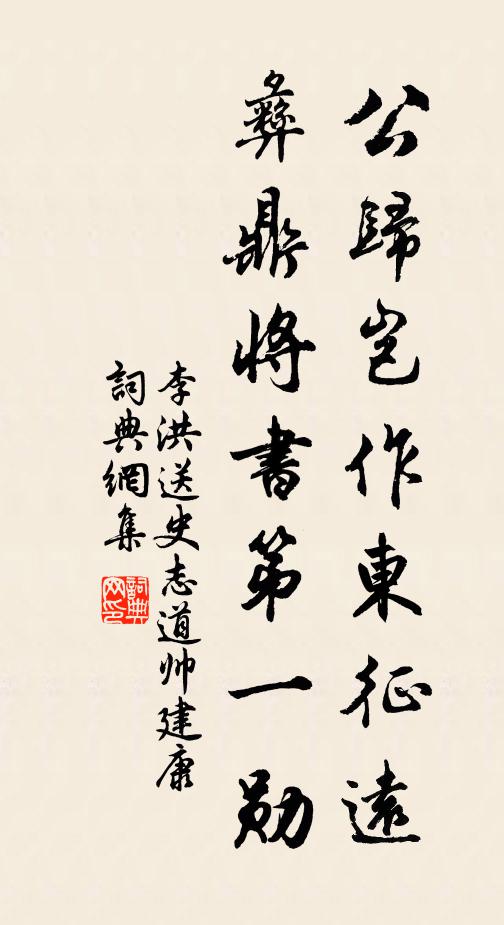 公歸豈作東征遠
彝鼎將書第一勛
李洪送史志道帅建康
詞典網集
詞典網印